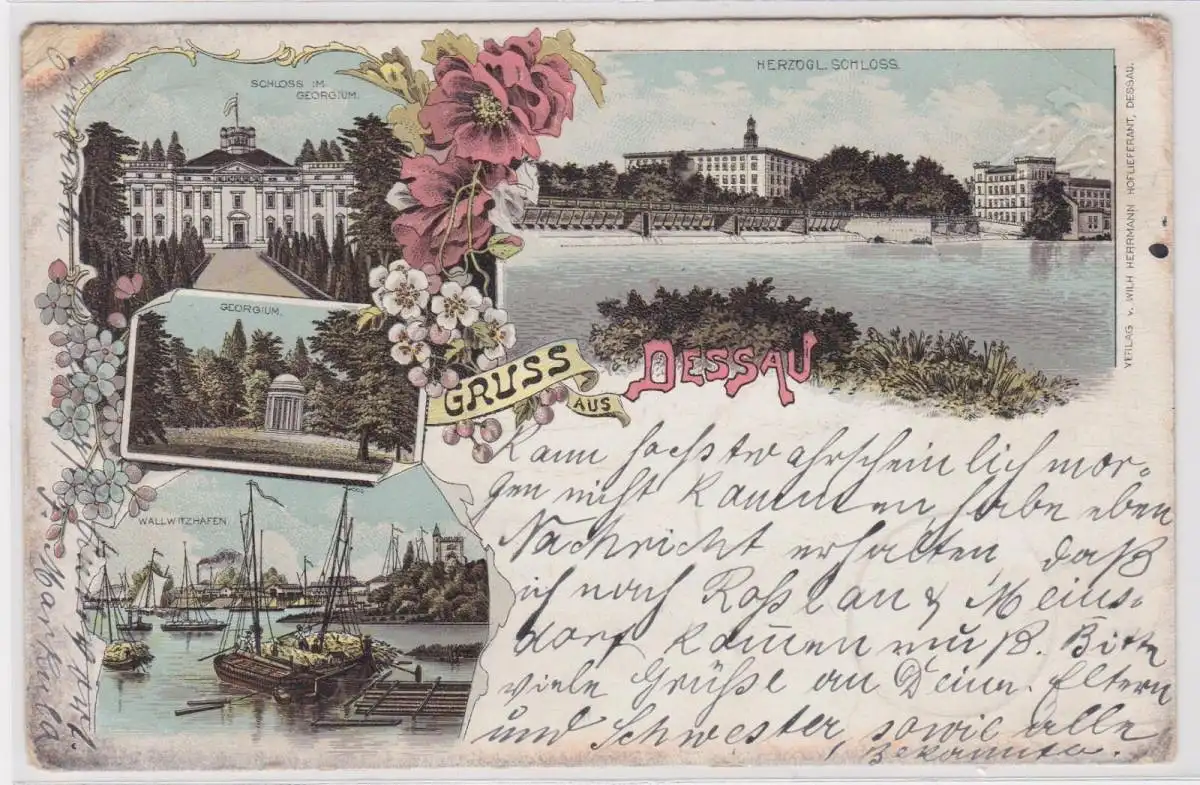 SCHLOSS IM
GEORGIUM.
HERZOGL. SCHLOSS.
GEORGIUM.
WALLWITZHAFEN
GRUSS
AUS
DESSAU
VERLAG v. WILH HERRMANN HOFLIEFERANT, DESSAU.
Kann höchstwahrscheinlich mor-
gen nicht kommen, habe eben
Nachricht erhalten, daß
ich nach Roßlau & Meins-
dorf kom̅en muß. Bitte
viele Grüße an Deine Eltern
und Schwester, sowie alle
Bekannte.